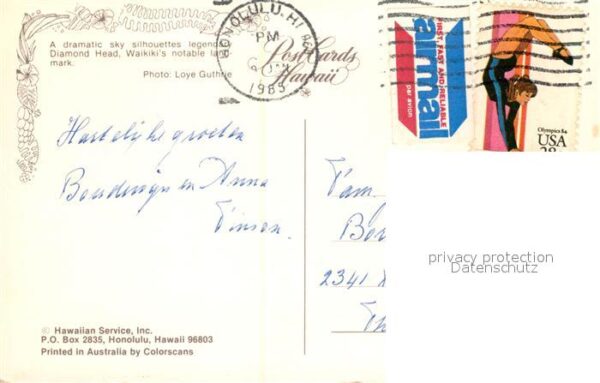 A dramatic sky silhouettes legend
Diamond Head, Waikiki's notable land
mark.
Photo: Loye Guthrie
HONOLULU, HI
PM
1983
Post Cards
Hawaii
FIRST, FAST AND RELIABLE
airmail
par avion
Olympics 84
USA
28
Hartelijke groeten
en Anna
Fam.
2341
privacy protection
Datenschutz
© Hawaiian Service, Inc.
P.O. Box 2835, Honolulu, Hawaii 96803
Printed in Australia by Colorscans